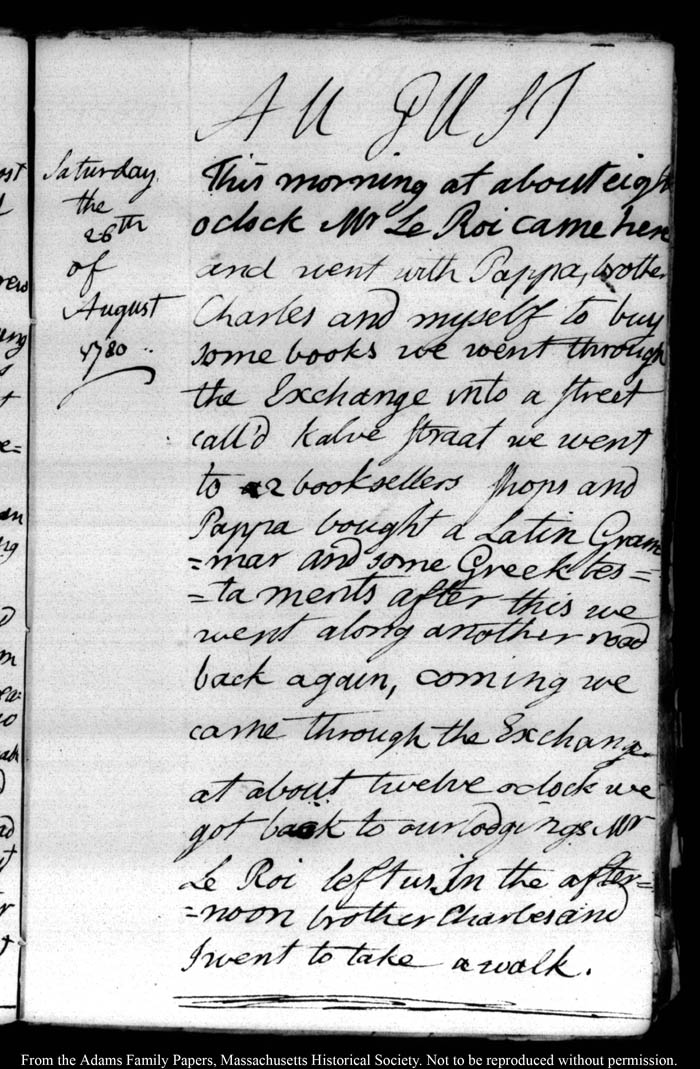 AUGUST
Saturday
the
26th
of
August
1780
This morning at about eight
oclock Mr Le Roi came here
and went with Pappa, brother
Charles and myself to buy
some books we went through
the Exchange into a street
call'd Kalve straat we went
to 2 booksellers shops and
Pappa bought a Latin Gram
=mar and some Greek tes=
=ta ments after this we
went along another road
back again, coming we
came through the Exchange
at about twelve oclock we
got back to our lodgings Mr
Le Roi left us. In the after=
=noon brother Charles and
I went to take a walk.
From the Adams Family Papers, Massachusetts Historical Society. Not to be reproduced without permission.